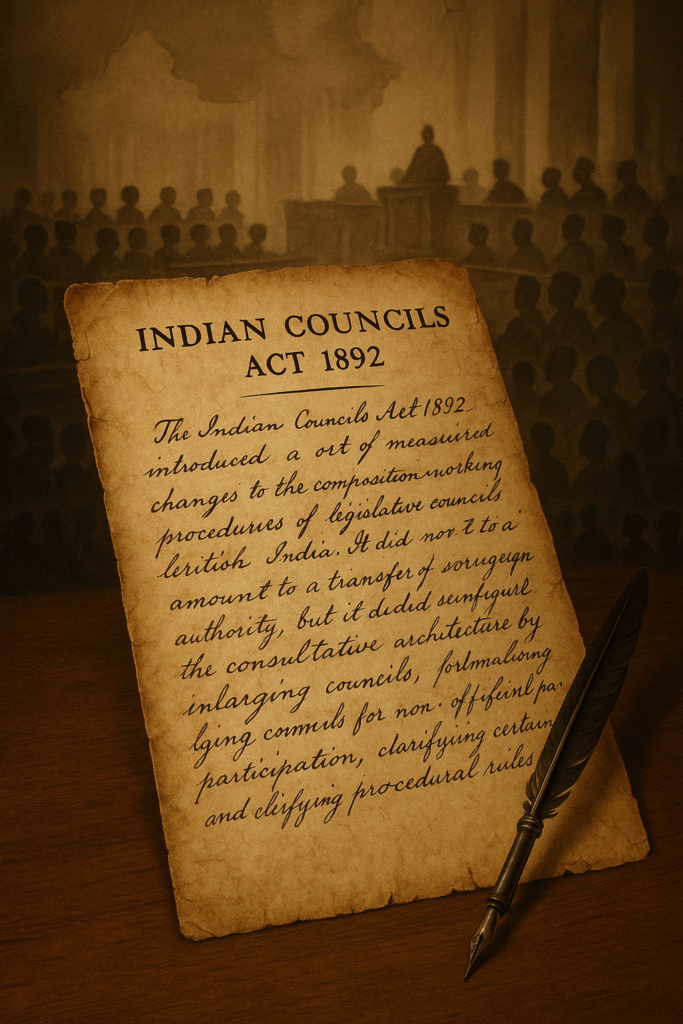 INDIAN COUNCILS
ACT 1892
The Indian Councils Act 1892
introduced a ort of measuired
changes to the composition working
proceduries of legislative councils
leritish India. It did not to a
amount to a transfer of
authority, but it didid
the consultative architecture by
inlarging councils, forlmalising
lging commils for non.
participation, clarifyiing certain
and cleifying procedural rules